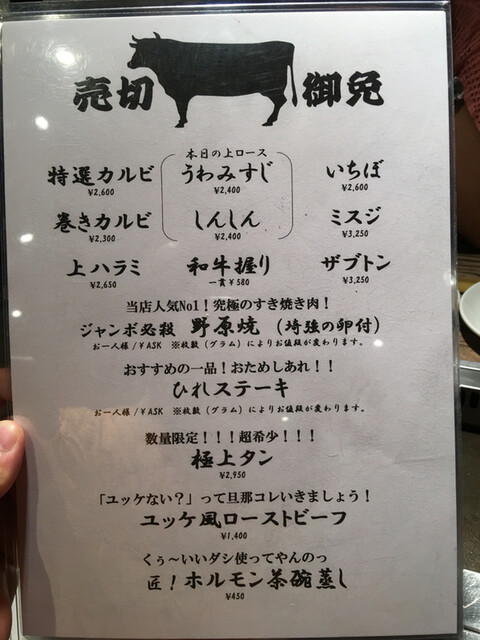 売切 御免
本日の上ロース
特選カルビ うわみすじ いちぼ
¥2,600 ¥2,400 ¥2,600
巻きカルビ しんしん ミスジ
¥2,300 ¥2,400 ¥3,250
上ハラミ 和牛握り ザブトン
¥2,650 一貫¥580 ¥3,250
当店人気No1！究極のすき焼き肉！
ジャンボ必殺 野原焼 （地強の卵付）
お一人様/¥ASK ※枚数（グラム）によりお値段が変わります。
おすすめの一品！おためしあれ！！
ひれステーキ
お一人様/¥ASK ※枚数（グラム）によりお値段が変わります。
数量限定！！！超希少！！！
極上タン
¥2,950
「ユッケない？」って旦那コレいきましょう！
ユッケ風ローストビーフ
¥1,400
くぅ～いいダシ使ってやんのっ
匠！ホルモン茶碗蒸し
¥450